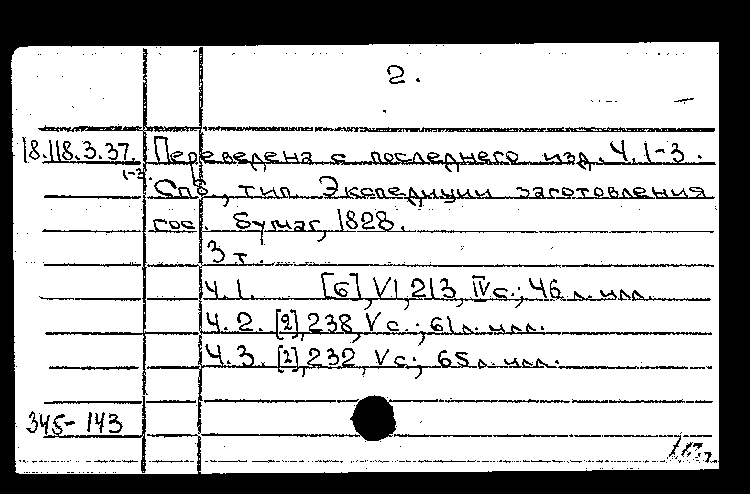 2.
18.118.3.37. Переведена с последнего изд. Ч. 1-3.
1-3
Спб, тип. Экспедиции заготовления
гос. бумаг, 1828.
3 т.
Ч. 1. [6], VI, 213, IV с.; 46 л. илл.
Ч. 2. [2], 238, V с.; 61 л. илл.
Ч. 3. [2], 232, V с.; 65 л. илл.
345-143